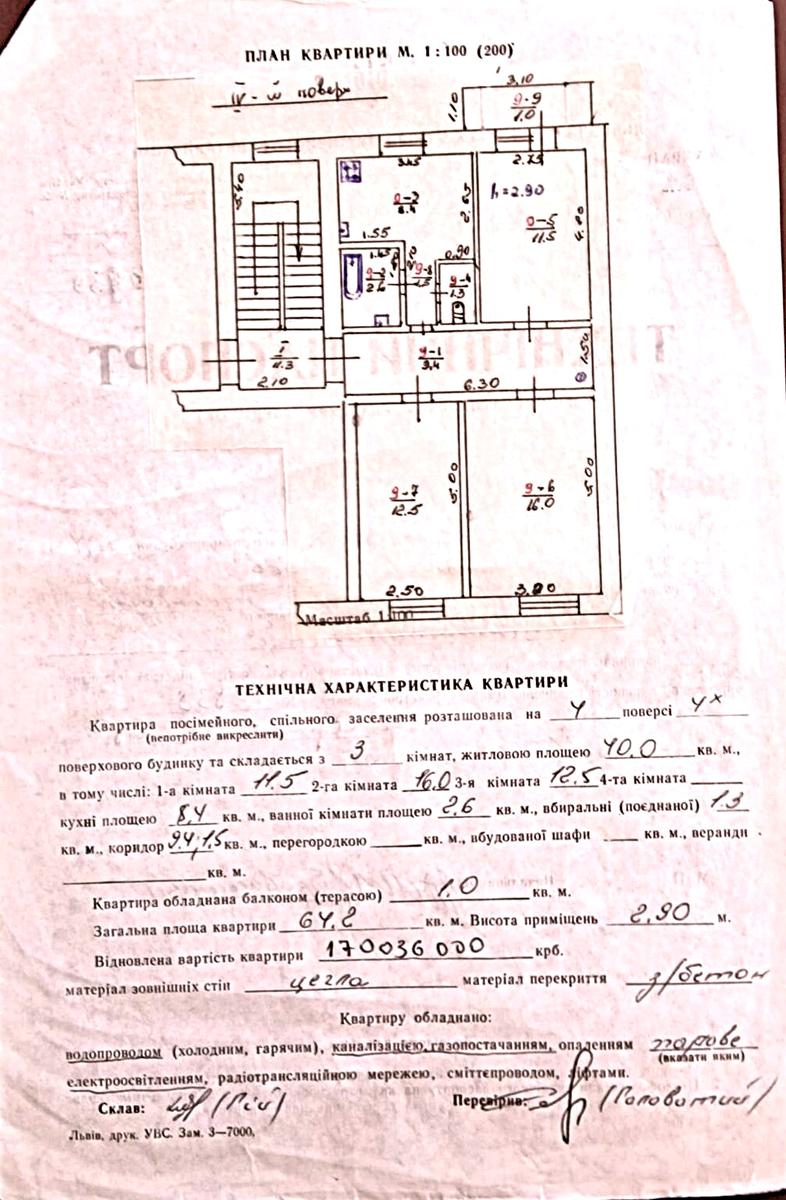 ПЛАН КВАРТИРИ М. 1:100 (200)
IV-й поверх
3.10
1.10
9-9
1.0
5.40
3.45
2.75
h=2.90
8.4
2.65
11.5
1.55
1.45
0.90
2.6
9-3
1.5
9-4
1.3
I
11.3
2.10
9-1
9.4
6.30
1.50
9-7
12.5
5.00
9-6
16.0
5.00
2.50
Масштаб 1:100
ТЕХНІЧНА ХАРАКТЕРИСТИКА КВАРТИРИ
Квартира посімейного, спільного заселення розташована на 4 поверсі 4х
(непотрібне викреслити)
поверхового будинку та складається з 3 кімнат, житловою площею 40.0 кв. м.,
в тому числі: 1-а кімната 11.5 2-га кімната 16.0 3-я кімната 12.5 4-та кімната
кухні площею 8,4 кв. м., ванної кімнати площею 2,6 кв. м., вбиральні (поєднаної) 1.3
кв. м., коридор 9.4; 1.5 кв. м., перегородкою кв. м., вбудованої шафи кв. м., веранди
кв. м.
Квартира обладнана балконом (терасою) 1.0 кв. м.
Загальна площа квартири 64.2 кв. м. Висота приміщень 2.90 м.
Відновлена вартість квартири 170036000 крб.
матеріал зовнішніх стін цегла матеріал перекриття з/бетон
Квартиру обладнано:
водопроводом (холодним, гарячим), каналізацією, газопостачанням, опаленням парове
(вказати яким)
електроосвітленням, радіотрансляційною мережею, сміттєпроводом, ліфтами.
Склав: (Гій) Перевірив: (Головатий)
Львів, друк. УВС. Зам. 3—7000,